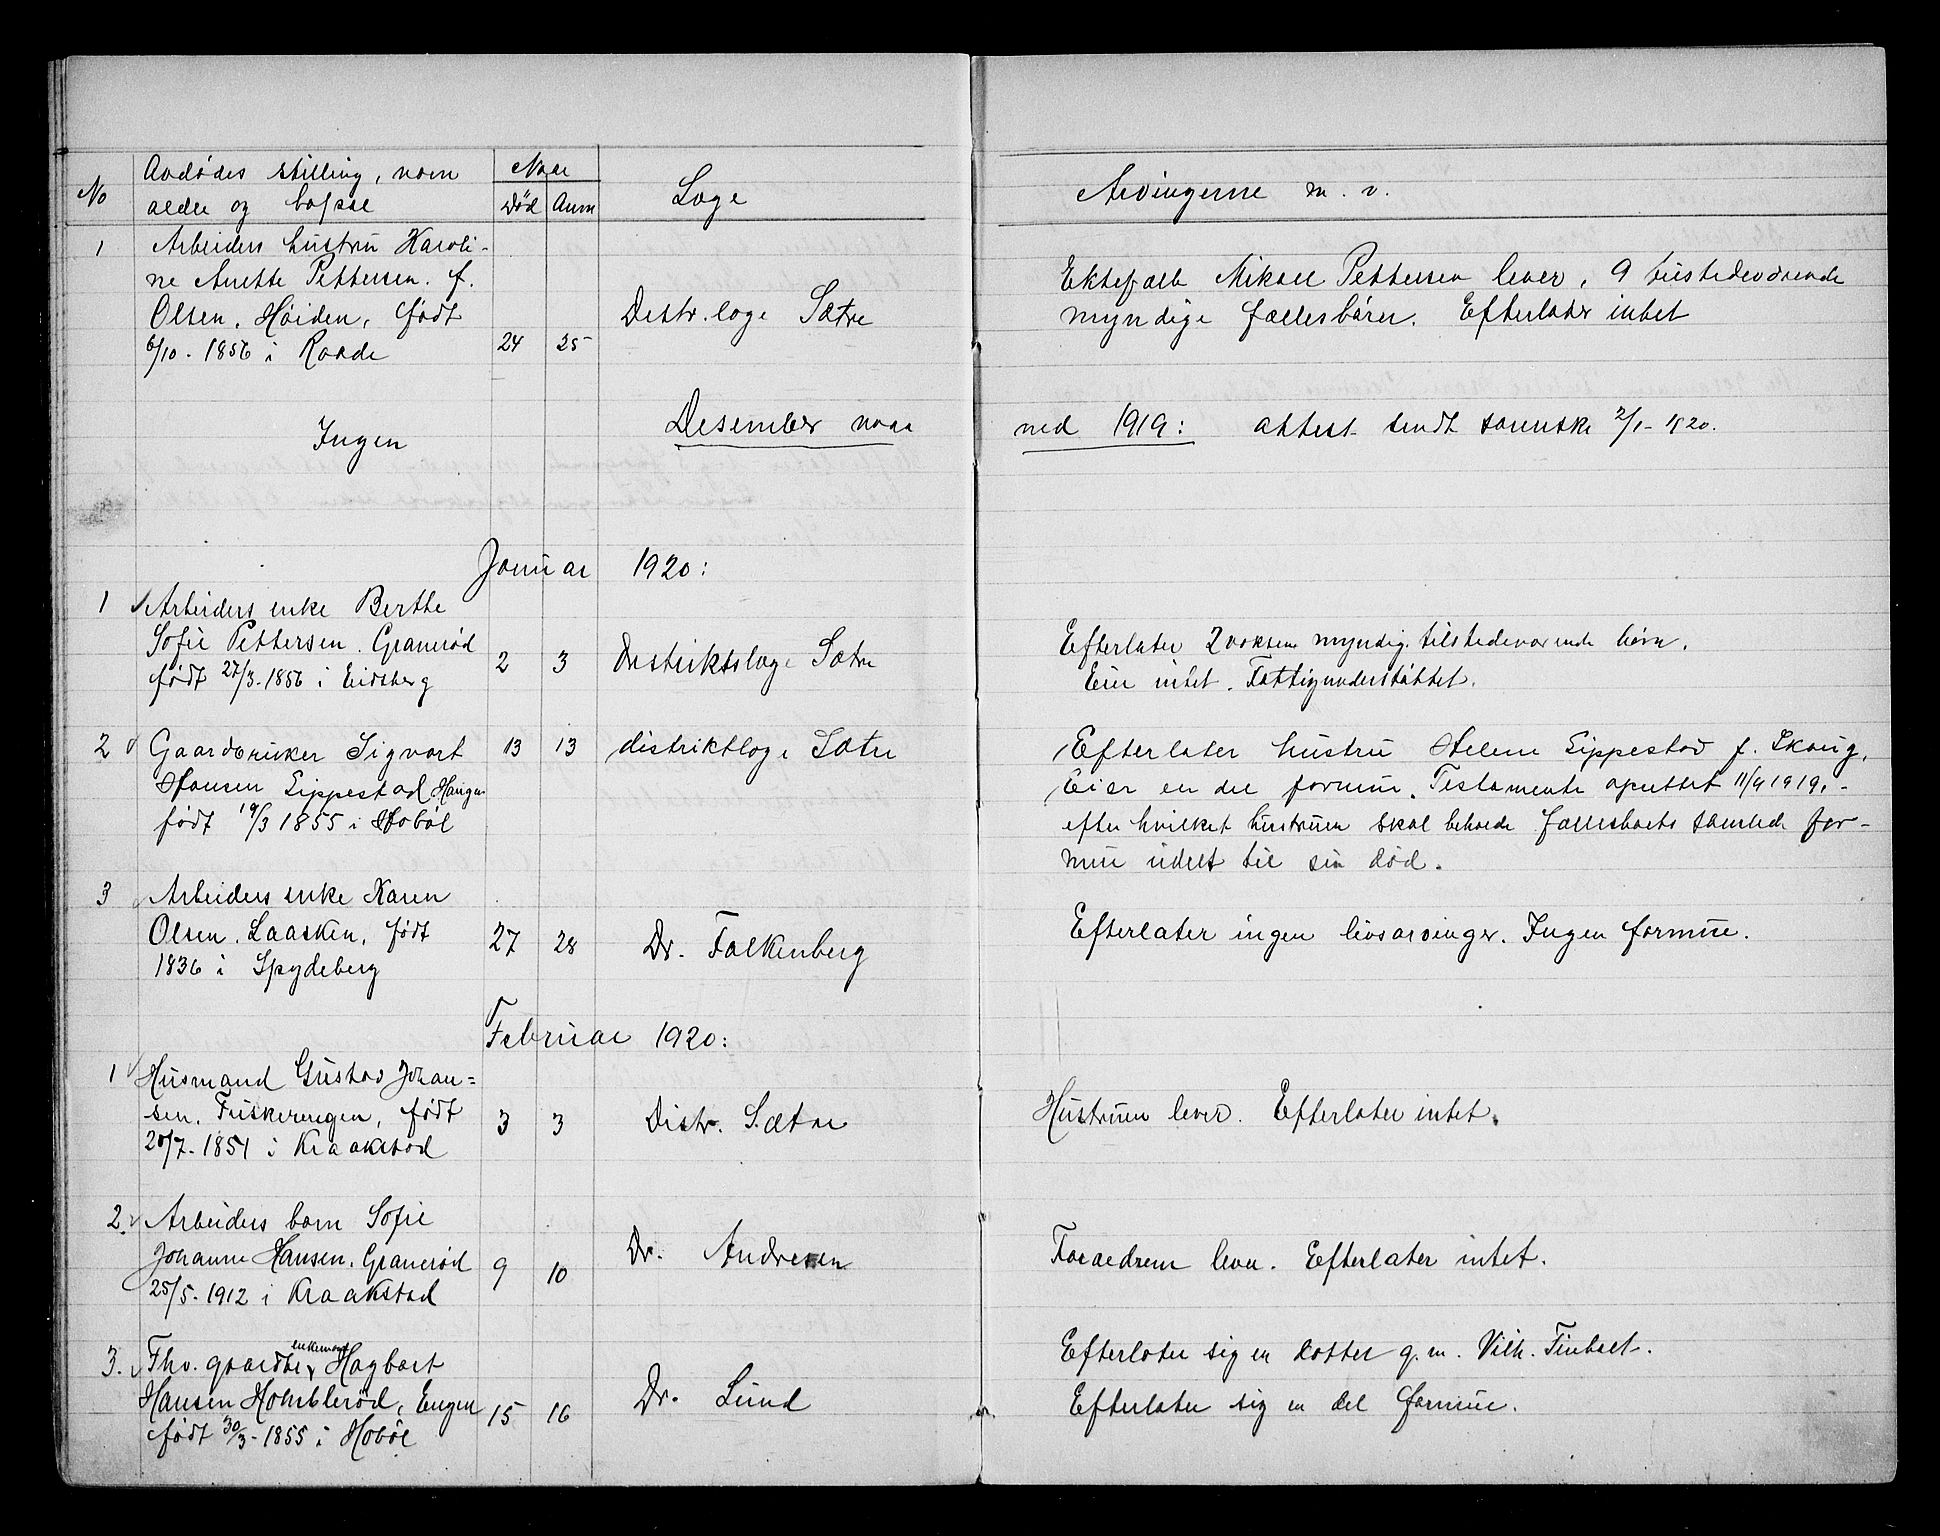 No
Avdødes stilling, navn
alder og bopæl
Naar
Død Anm
Læge
Arvingerne m. v.
1 Arbeiders hustru Karoli-
ne Anette Pettersen. f.
Olsen. Høiden, født
6/10. 1856 i Raade 24 25 Distr. læge Sætre
Ektefælle Mikael Pettersen lever, 9 tilstedeværende
myndige fællesbørn. Efterlater intet
Ingen Desember maa
ned 1919: attest sendt 2/1-1920.
Januar 1920:
1 Arbeiders enke Berthe
Sofie Pettersen. Granerød
født 27/3-1856 i Eidsberg 2 3 Distriktslæge Sætre
Efterlater 2 voksne myndig. tilstedeværende børn.
Eier intet. Fattigunderstøttet.
2 Gaardbruker Sigvart
Hansen Lippestad Haugen
født 19/3 1855 i Hobøl 13 13 distriktlæge Sætre
Efterlater hustru Helene Lippestad f. Skaug.
Eier en del formue. Testamente oprettet 11/9 1919,-
efter hvilket hustruen skal beholde fællesboets samlede for-
mue udelt til sin død.
3 Arbeiders enke Karen
Olsen. Laasken, født
1836 i Spydeberg 27 28 Dr. Falkenberg
Efterlater ingen livsarvinger. Ingen formue.
Februar 1920:
1 Husmand Gustav Johan=
sen. Fuskerengen, født
20/7-1851 i Kraakstad 3 3 Distr. Sætre
Hustruen lever. Efterlater intet.
2. Arbeiders barn Sofie
Johanne Hansen. Granerød
25/5-1912 i Kraakstad 9 10 Dr. Andresen
Foraeldrene lever. Efterlater intet.
3. Fhv. gaardbr enkemand Hagbart
Hansen Homblerød, Engen
født 30/3-1855 i Hobøl 15 16 Dr. Lund
Efterlater sig en datter g. m. Vilh. Finhart.
Efterlater sig en del formue.